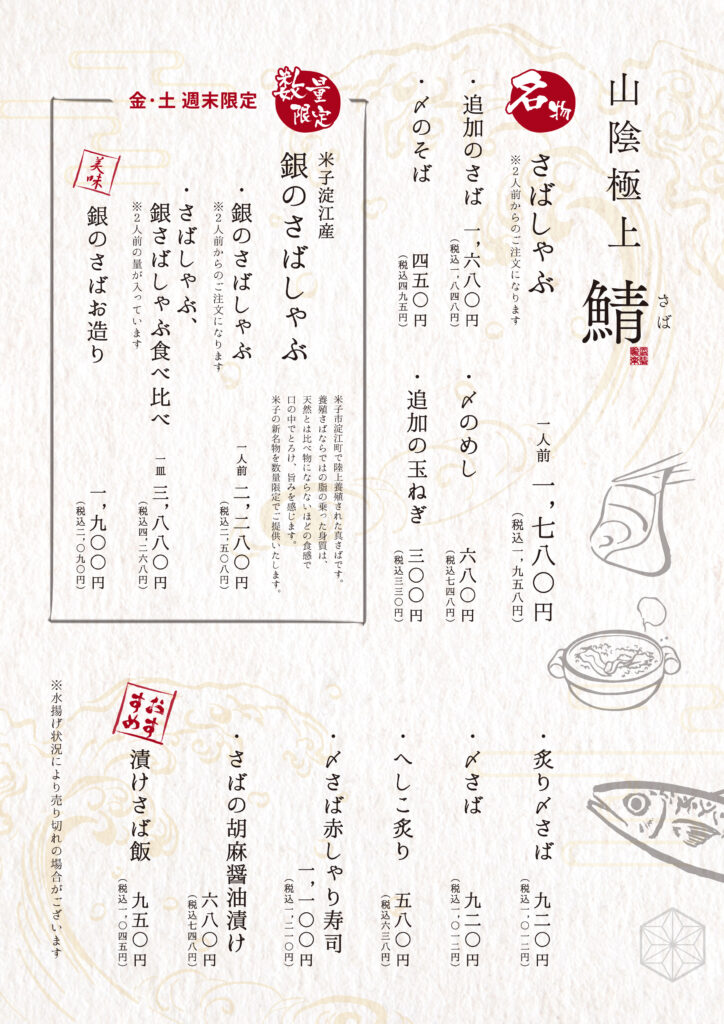 山陰極上
鯖
さば
名物
さばしゃぶ
一人前 一,七八〇円
(税込一,九五八円)
※2人前からのご注文になります
・追加のさば 一,六八〇円
(税込一,八四八円)
・〆のめし 六八〇円
(税込七四八円)
・〆のそば 四五〇円
(税込四九五円)
・追加の玉ねぎ 三〇〇円
(税込三三〇円)
数量限定
金・土 週末限定
米子淀江産
銀のさばしゃぶ
米子市淀江町で陸上養殖された真さばです。
養殖さばならではの脂の乗った身質は、
天然とは比べ物にならないほどの食感で
口の中でとろけ、旨みを感じます。
米子の新名物を数量限定でご提供いたします。
・銀のさばしゃぶ
一人前 二,二八〇円
(税込二,五〇八円)
※2人前からのご注文になります
・さばしゃぶ、
銀さばしゃぶ食べ比べ
一皿 三,八八〇円
(税込四,二六八円)
※2人前の量が入っています
美味
銀のさばお造り
一,九〇〇円
(税込二,〇九〇円)
・炙り〆さば 九二〇円
(税込一,〇一二円)
・〆さば 九二〇円
(税込一,〇一二円)
・へしこ炙り 五八〇円
(税込六三八円)
・〆さば赤しゃり寿司
一,一〇〇円
(税込一,二一〇円)
・さばの胡麻醤油漬け
六八〇円
(税込七四八円)
おすすめ
漬けさば飯 九五〇円
(税込一,〇四五円)
※水揚げ状況により売り切れの場合がございます